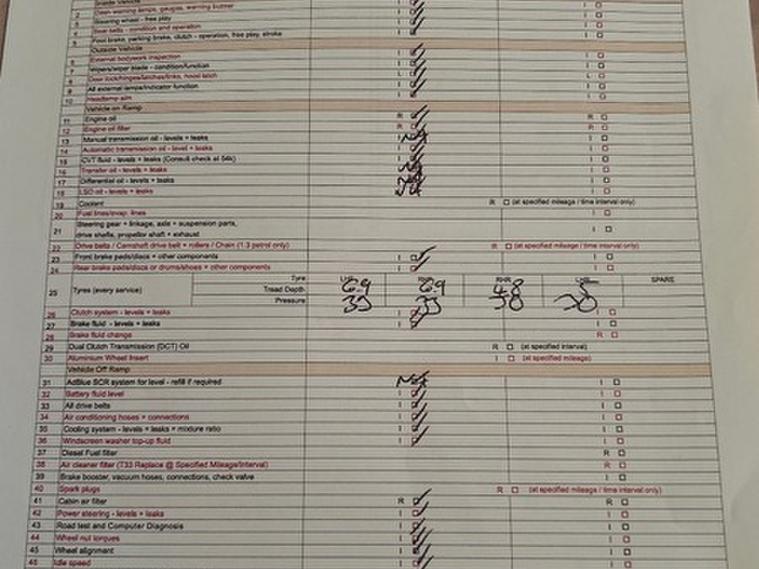 Inside Vehicle
2 Clean warning lamps, gauges, warning buzzer I □ I □
3 Steering wheel - free play I □ I □
4 Seat belts - condition and operation I □ I □
5 Foot brake, parking brake, clutch - operation, free play, stroke I □ I □
Outside Vehicle
6 External bodywork inspection I □ I □
7 Wipers/wiper blade - condition/function I □ I □
8 Door lock/hinges/latches/links, hood latch L □ L □
9 All external lamps/indicator function I □ I □
10 Headlamp aim I □ I □
Vehicle on Ramp
11 Engine oil R □ R □
12 Engine oil filter R □ R □
13 Manual transmission oil - levels + leaks I □
14 Automatic transmission oil - level + leaks I □ I □
15 CVT fluid - levels + leaks (Consult check at 54k) I □ I □
16 Transfer oil - levels + leaks I □
17 Differential oil - levels + leaks I □
18 LSD oil - levels + leaks I □
19 Coolant R □ (at specified mileage / time interval only)
20 Fuel lines/evap. lines I □
21 Steering gear + linkage, axle + suspension parts, drive shafts, propellor shaft + exhaust I □
22 Drive belts / Camshaft drive belt + rollers / Chain (1.3 petrol only) R □ (at specified mileage / time interval only)
23 Front brake pads/discs + other components I □ I □
24 Rear brake pads/discs or drums/shoes + other components I □ I □
25 Tyres (every service) Tyre LHF RHF RHR LHR SPARE
Tread Depth 6.9 6.9 4.8 5
Pressure 33 33 38 38
26 Clutch system - levels + leaks I □ I □
27 Brake fluid - levels + leaks I □ I □
28 Brake fluid change R □
29 Dual Clutch Transmission (DCT) Oil R □ (at specified interval)
30 Aluminium Wheel Insert I □ (at specified mileage)
Vehicle Off Ramp
31 AdBlue SCR system for level - refill if required I □
32 Battery fluid level I □ I □
33 All drive belts I □ I □
34 Air conditioning hoses + connections I □ I □
35 Cooling system - levels + leaks + mixture ratio I □ I □
36 Windscreen washer top-up fluid I □ I □
37 Diesel Fuel filter R □
38 Air cleaner filter (T33 Replace @ Specified Mileage/Interval) R □
39 Brake booster, vacuum hoses, connections, check valve I □
40 Spark plugs R □ (at specified mileage / time interval only)
41 Cabin air filter R □ R □
42 Power steering - levels + leaks I □ I □
43 Road test and Computer Diagnosis I □ I □
44 Wheel nut torques I □ I □
45 Wheel alignment I □ I □
46 Idle speed I □ I □